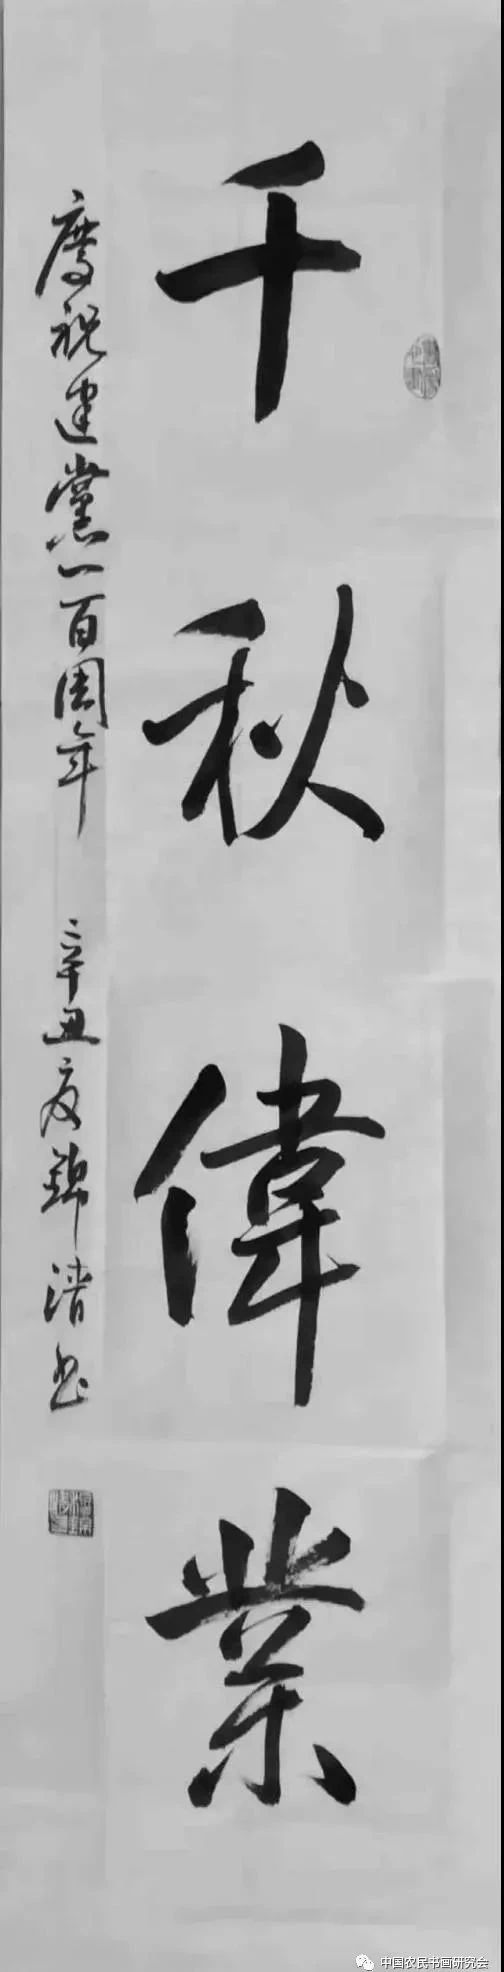 千秋偉業
慶祝建黨一百周年 辛丑夏錦清书
中国农民书画研究会